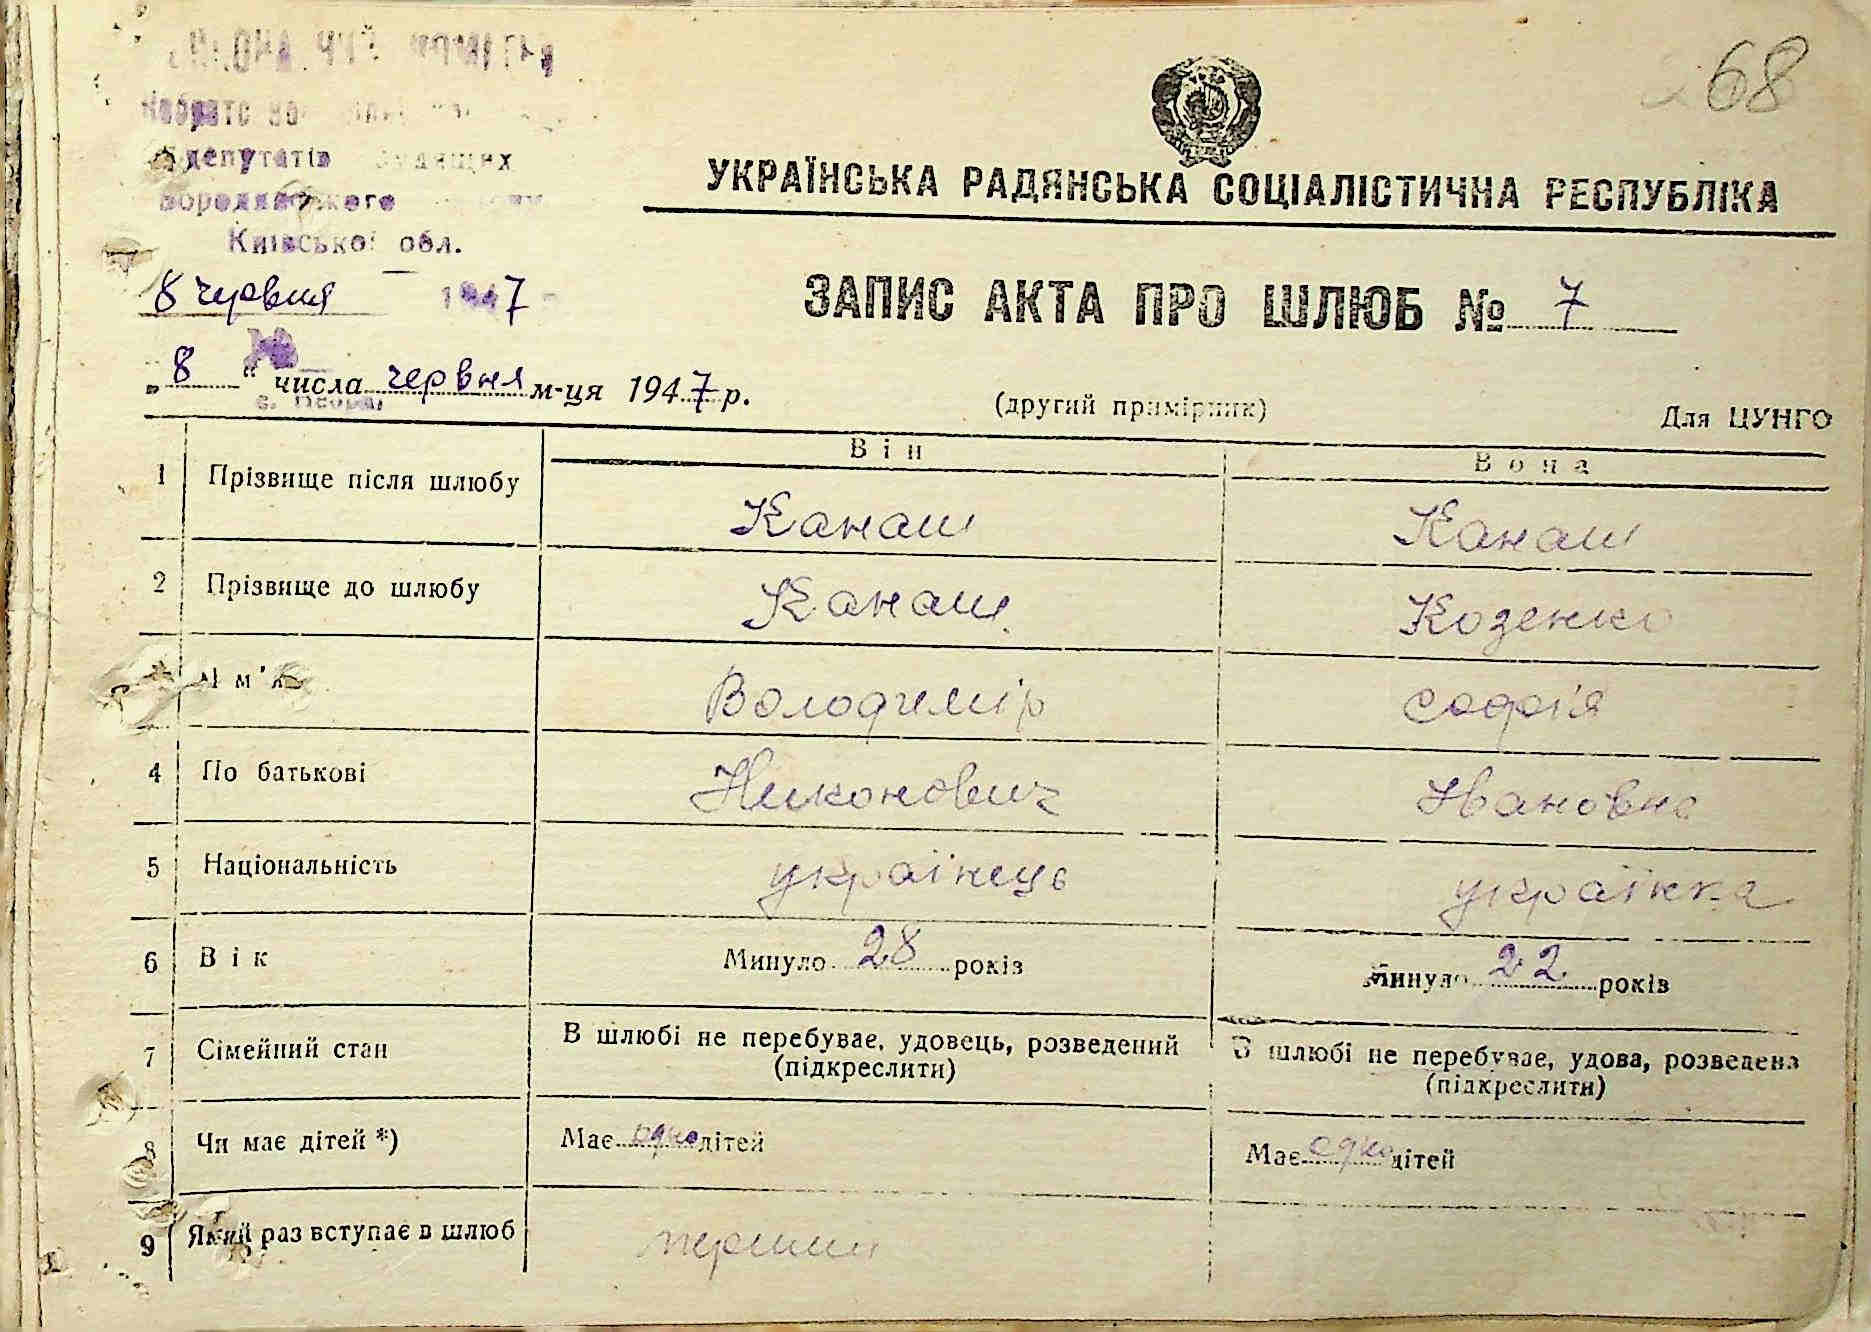 68
УКРАЇНСЬКА РАДЯНСЬКА СОЦІАЛІСТИЧНА РЕСПУБЛІКА
депутатів трудящих
Бородянського
Київської обл.
8 червня 1947
ЗАПИС АКТА ПРО ШЛЮБ № 7
„8“ числа червня м-ця 1947 р.
(другий примірник)
Для ЦУНГО
Він Вона
1 Прізвище після шлюбу Канаш Канаш
2 Прізвище до шлюбу Канаш Козенко
Ім'я Володимір Софія
4 По батькові Никонович Івановна
5 Національність українець українка
6 Вік Минуло 28 років Минуло 22 років
7 Сімейний стан В шлюбі не перебуває, удовець, розведений (підкреслити) В шлюбі не перебуває, удова, розведена (підкреслити)
8 Чи має дітей *) Має одно дітей Має одно дітей
9 Який раз вступає в шлюб перший